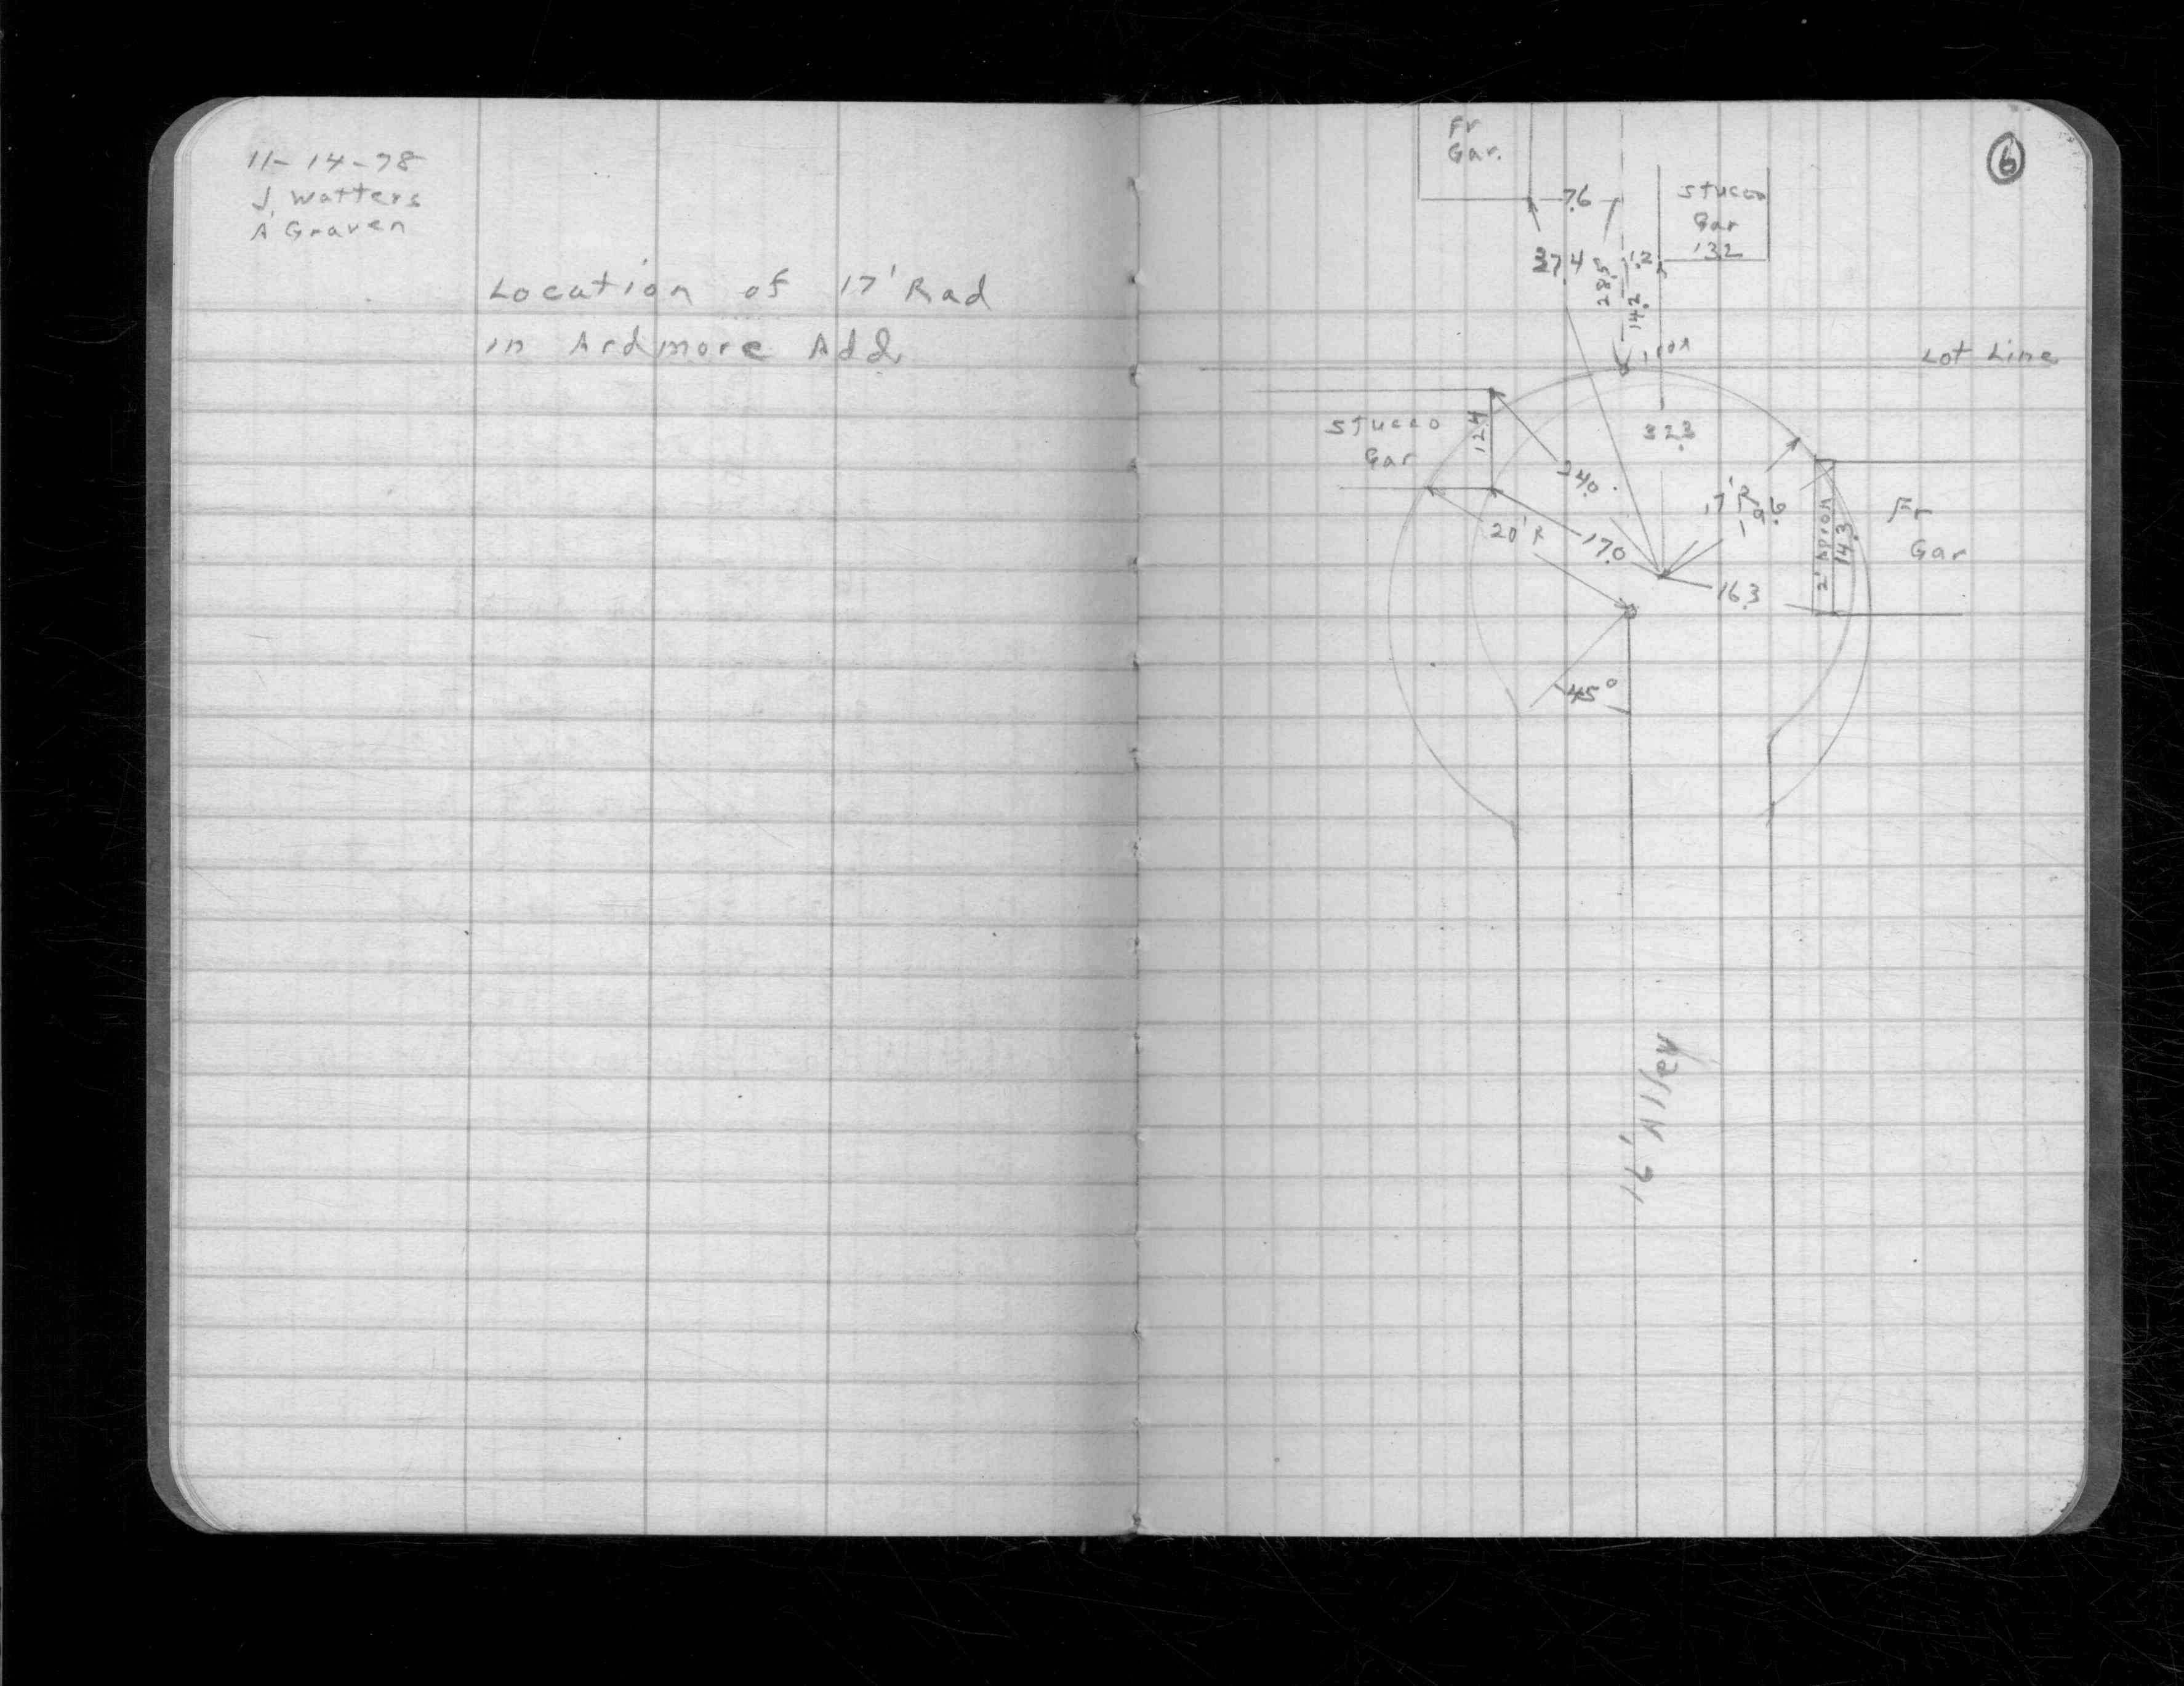 11-14-78
J. Watters
A Graven
Location of 17' Rad
in Ardmore Add.
6
Fr
Gar.
7.6
Stucco
Gar
13.2
37.4
28.5
1.2
14.2
Lot Line
Stucco
Gar
12.4
32.3
24.0
17' R
19.6
20' R
17.0
2' Apron
14.3
Fr
Gar
16.3
45°
16' Alley